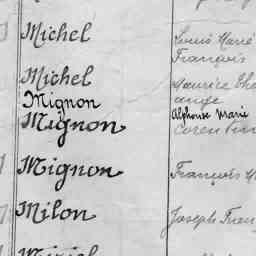 Michel Louis Marie
François
Michel Maurice
Mignon ange
Mignon Alphonse Marie
Corentin
Mignon François
Milon Joseph